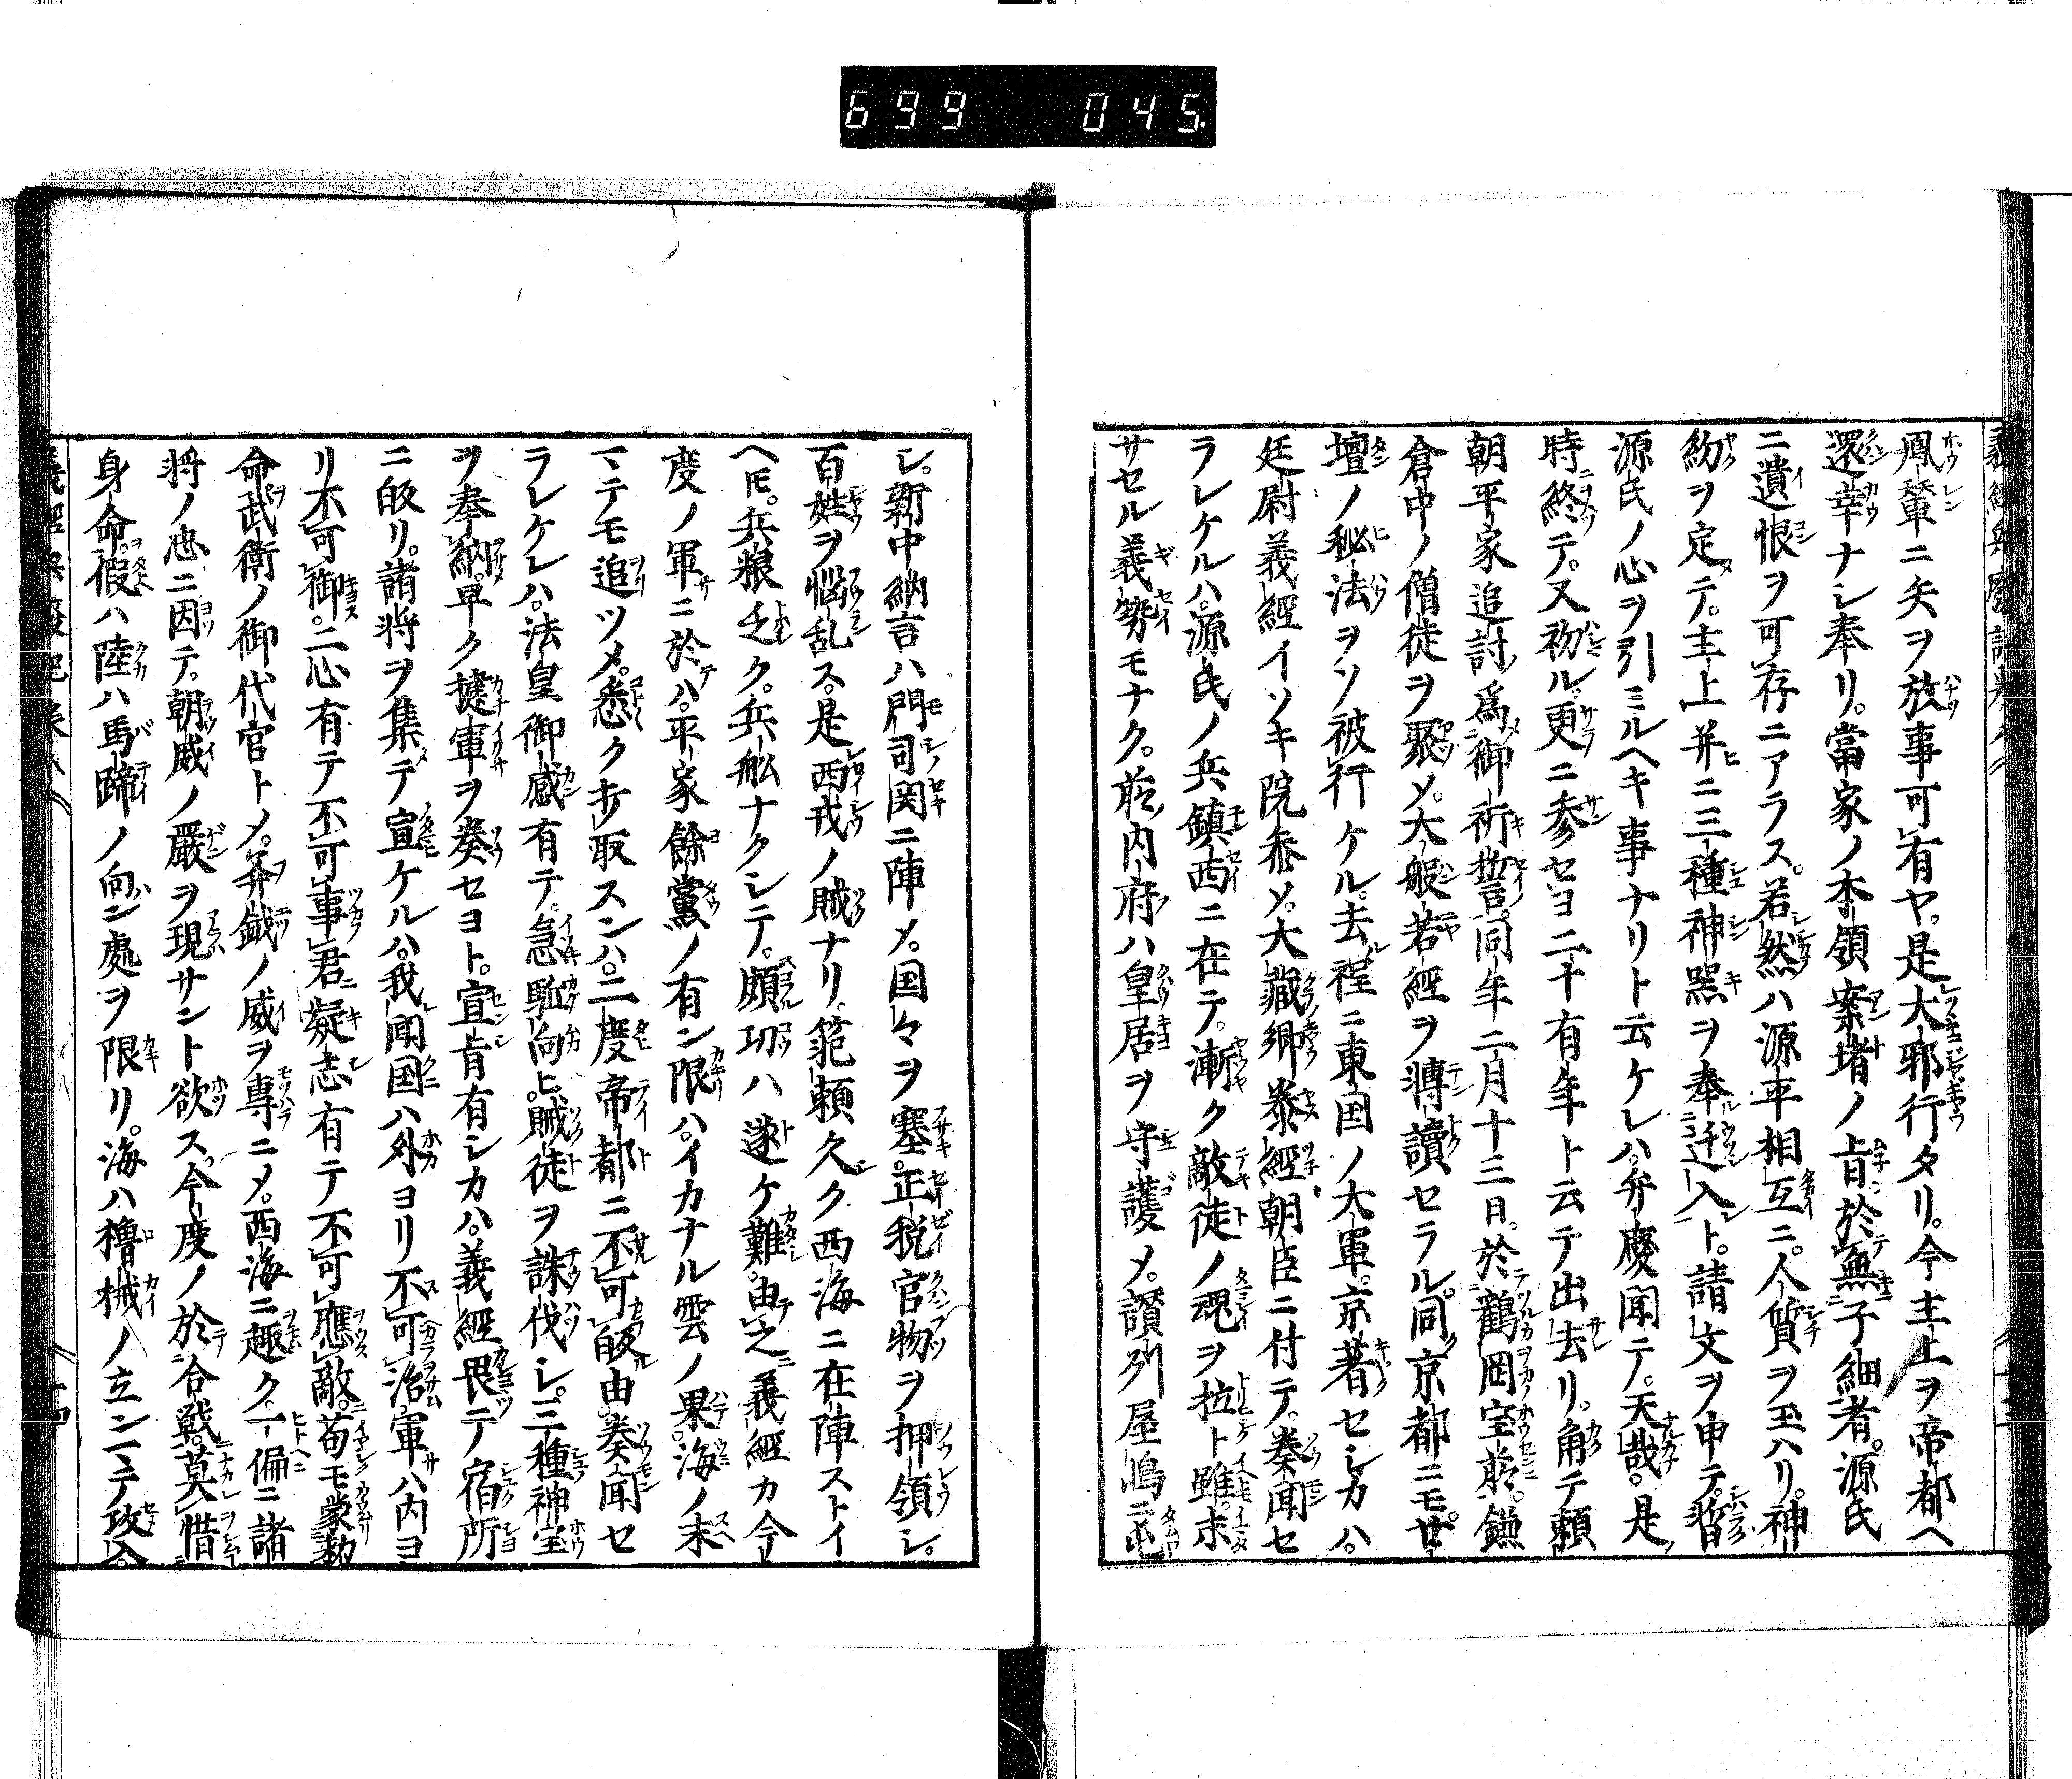 699 045
鳳輦ニ矢ヲ放事可有ヤ。是大邪行タリ。今主上ヲ帝都ヘ
還幸ナシ奉リ。當家ノ本領案堵ノ旨於無子細者。源氏
ニ遺恨ヲ可存ニアラス。若然ハ源平相互ニ。人質ヲ玉ハリ。神
約ヲ定テ。主上并ニ三種神器ヲ奉迁入ト。請文ヲ申テ。暫
源氏ノ心ヲ引ミルヘキ事ナリト云ケレハ。弁慶聞テ。天哉。是
時終テ。又初ル。更ニ参セヨ二十有年ト云テ出去リ。角テ頼
朝平家追討ノ爲御祈誓。同年二月十三日。於鶴岡宝前。鎌
倉中ノ僧徒ヲ聚メ。大般若經ヲ轉讀セラル。同京都ニモ。廿
壇ノ秘法ヲソ被行ケル。去程ニ東国ノ大軍。京著セシカハ。
廷尉義經イソキ院参ソ。大藏卿泰經朝臣ニ付テ。奏聞セ
ラレケルハ。源氏ノ兵鎮西ニ在テ。漸ク敵徒ノ魂ヲ拉ト雖。未
サセル義勢モナク。前内府ハ皇居ヲ守護メ。讃刕屋嶋ニ屯
シ。新中納言ハ門司関ニ陣メ。国々ヲ塞。正税官物ヲ押領シ。
百姓ヲ悩乱ス。是西戎ノ賊ナリ。範頼久ク西海ニ在陣ストイ
ヘ𪜈。兵粮乏ク。兵舩ナクシテ。頗功ハ遂ケ難。由之義經カ今
度ノ軍ニ於ハ。平家餘黨ノ有ン限ハ。イカナル雲ノ果。海ノ末
マテモ追ツメ。悉ク打取スンハ。二度帝都ニ不可皈由奏聞セ
ラレケレハ。法皇御感有テ。急馳向ヒ。賊徒ヲ誅伐シ。三種神宝
ヲ奉納。早ク捷軍ヲ奏セヨト。宣旨有シカハ。義經畏テ宿所
ニ皈リ。諸将ヲ集テ宣ケルハ。我聞国ハ外ヨリ不可治。軍ハ内ヨ
リ不可御。二心有テ不可事君。疑志有テ不可應敵。苟モ蒙勅
命武衛ノ御代官トメ。斧鉞ノ威ヲ專ニメ。西海ニ趣ク。一偏ニ諸
将ノ忠ニ因テ。朝威ノ嚴ヲ現サント欲ス。今度ノ於合戦。莫惜
身命。假ハ陸ハ馬蹄ノ向ン處ヲ限リ。海ハ櫓械ノ立ンマテ攻入。